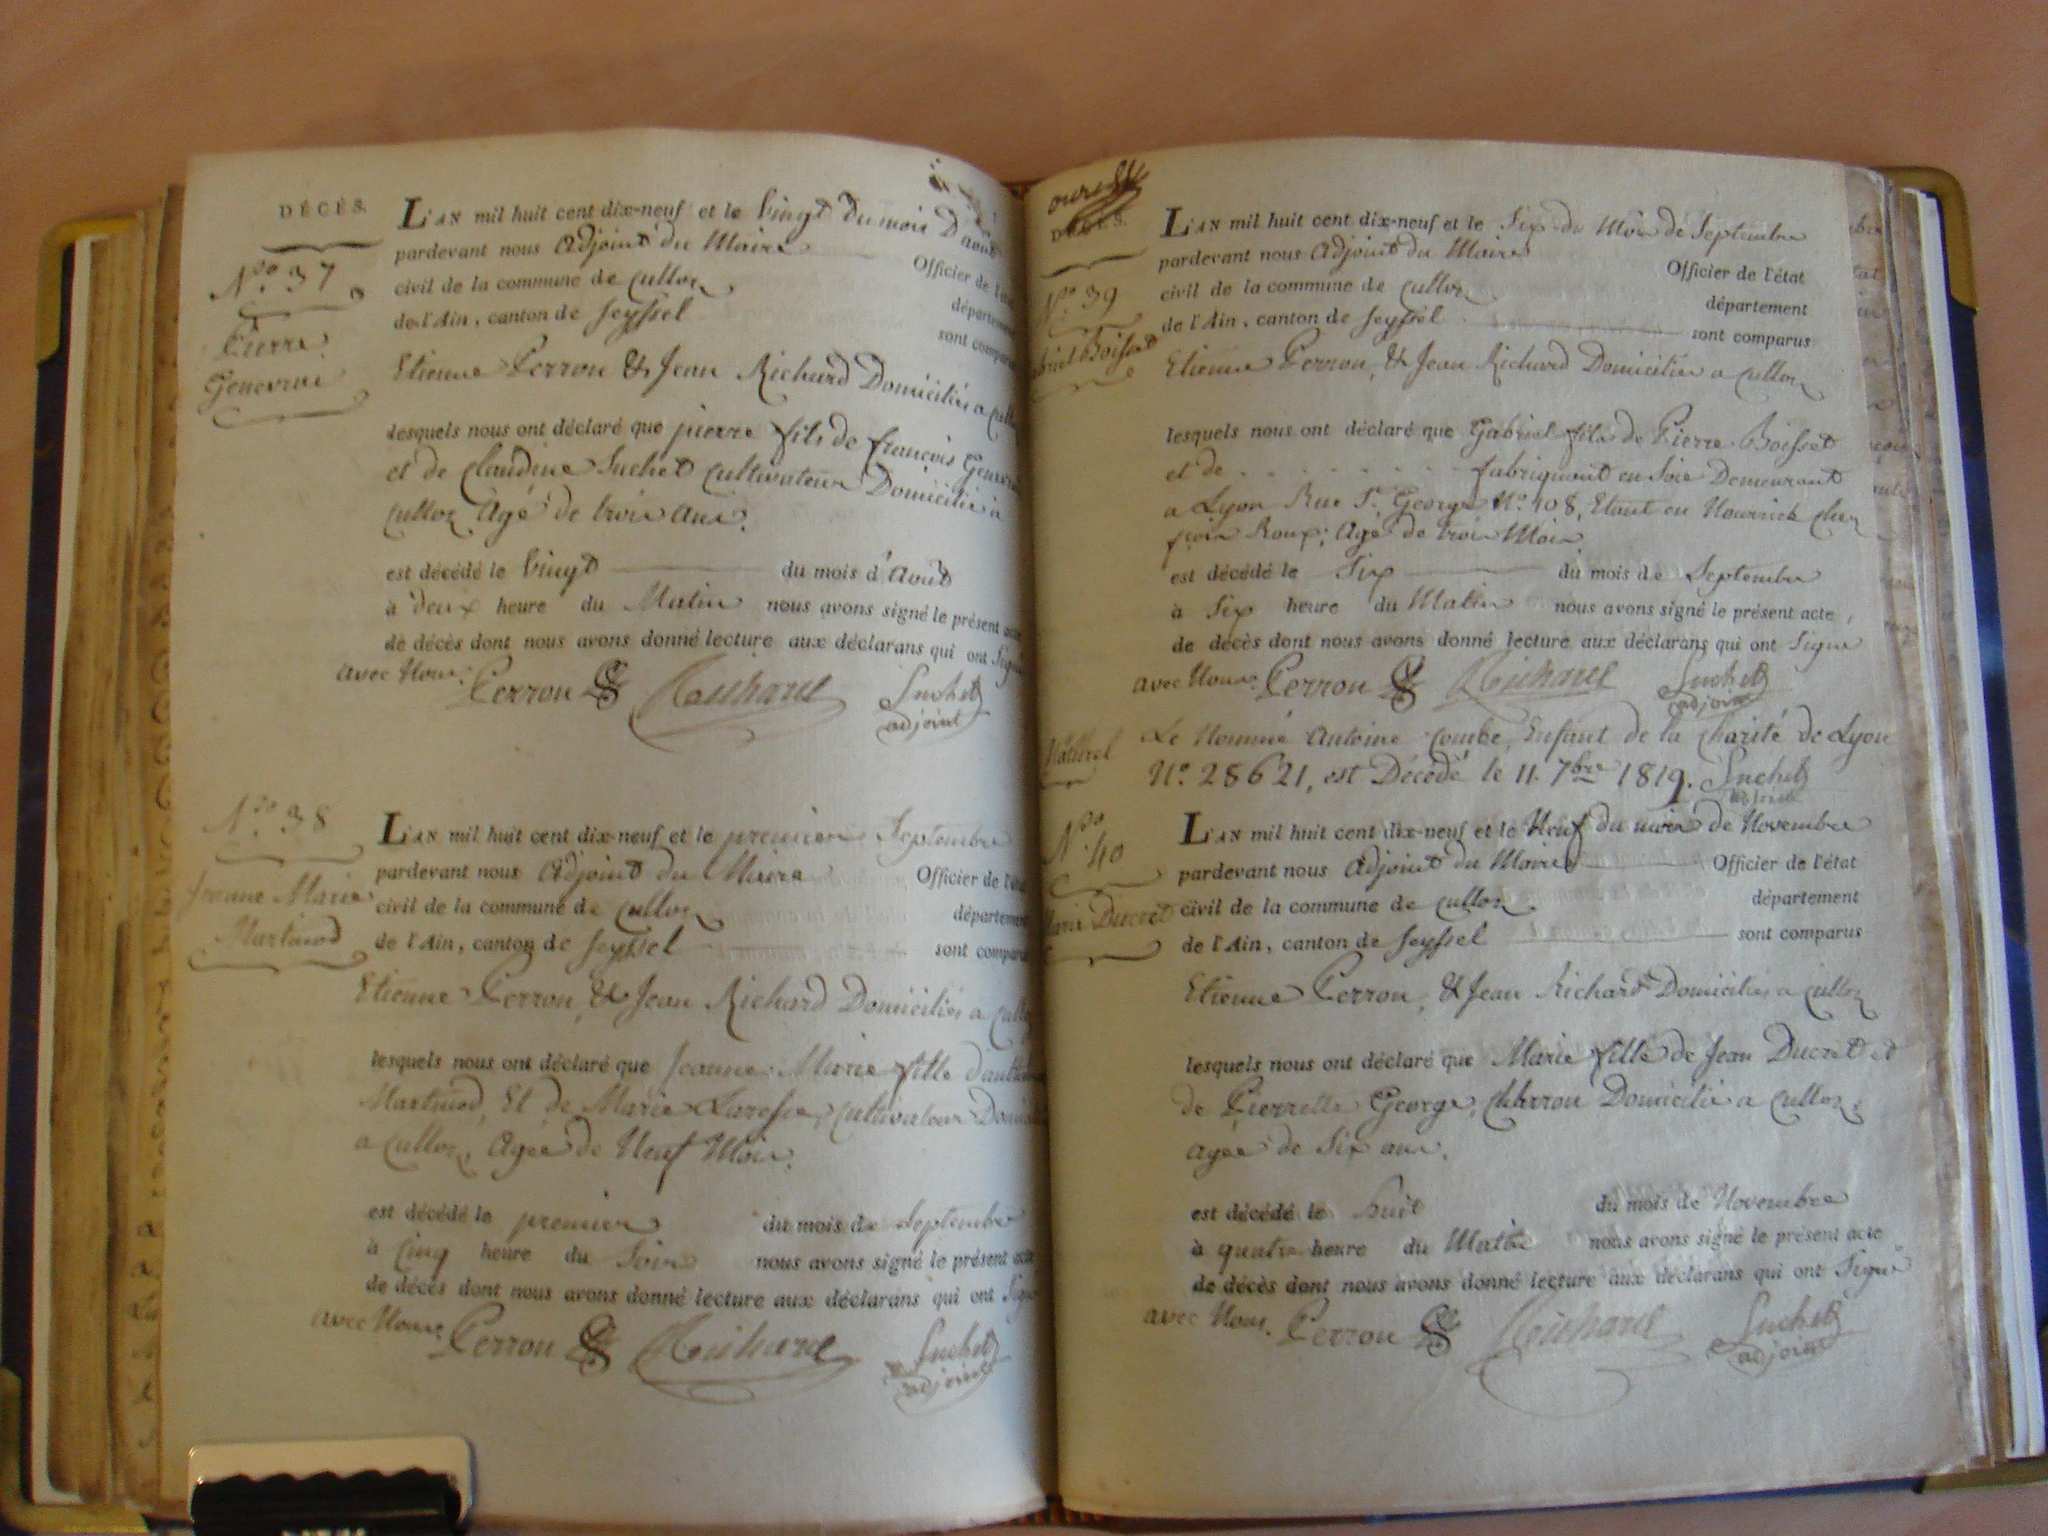 DÉCÈS.
N.º 37
Pierre
Genevrai
L'AN mil huit cent dix-neuf et le vingt du mois D'aout
pardevant nous Adjoint du Maire
Officier de l'état
civil de la commune de Culloz
département
de l'Ain, canton de Seyssel
sont comparus
Etienne Perron & Jean Richard Domiciliés a
lesquels nous ont déclaré que pierre fils de françois
et de Claudine Suchet Cultivateur Domicilié à
Culloz Agé de trois ans.
est décédé le vingt du mois d'Août
à deux heure du Matin nous avons signé le présent acte
de décès dont nous avons donné lecture aux déclarans qui ont Signé
avec Nous. Perron Richard Suchet
adjoint
N.º 38
Jeanne Marie
Martinod
L'AN mil huit cent dix-neuf et le premier Septembre
pardevant nous Adjoint du Maire Officier de l'état
civil de la commune de Culloz département
de l'Ain, canton de Seyssel sont comparus
Etienne Perron, & Jean Richard Domiciliés a Culloz
lesquels nous ont déclaré que Jeanne Marie fille
Martinod, Et de Marie cultivateur
a Culloz, Agée de Neuf Mois.
est décédé le premier du mois de Septembre
à Cinq heure du Soir nous avons signé le présent acte
de décès dont nous avons donné lecture aux déclarans qui ont Signé
avec Nous. Perron Richard Suchet
adjoint
DÉCÈS.
N.º 39
Boisset
L'AN mil huit cent dix-neuf et le Six du Mois de Septembre
pardevant nous Adjoint du Maire
Officier de l'état
civil de la commune de Culloz
département
de l'Ain, canton de Seyssel sont comparus
Etienne Perron, & Jean Richard Domiciliés a Culloz
lesquels nous ont déclaré que Gabriel fils de Pierre Boisset
et de . . . . . . . . . fabriquant en Soie Demeurant
a Lyon Rue St. George N.º 108, Etant en Nourrice chez
Roux; Agé de trois Mois
est décédé le Six du mois de Septembre
à Six heure du Matin nous avons signé le présent acte,
de décès dont nous avons donné lecture aux déclarans qui ont Signé
avec Nous. Perron Richard Suchet
adjoint
Naturel
Le Nommé Antoine Combe, Enfant de la Charité de Lyon
N.º 28621, est Décédé le 11. 7bre 1819. Suchet
adjoint
N.º 40
Marie Ducret
L'AN mil huit cent dix-neuf et le Neuf du mois de Novembre
pardevant nous Adjoint du Maire Officier de l'état
civil de la commune de Culloz département
de l'Ain, canton de Seyssel sont comparus
Etienne Perron, & Jean Richard Domiciliés a Culloz
lesquels nous ont déclaré que Marie fille de Jean Ducret et
de Pierrette George, Charron Domicilié a Culloz,
agée de Six ans.
est décédé le huit du mois de Novembre
à quatre heure du Matin nous avons signé le présent acte
de décès dont nous avons donné lecture aux déclarans qui ont Signé
avec Nous. Perron Richard Suchet
adjoint